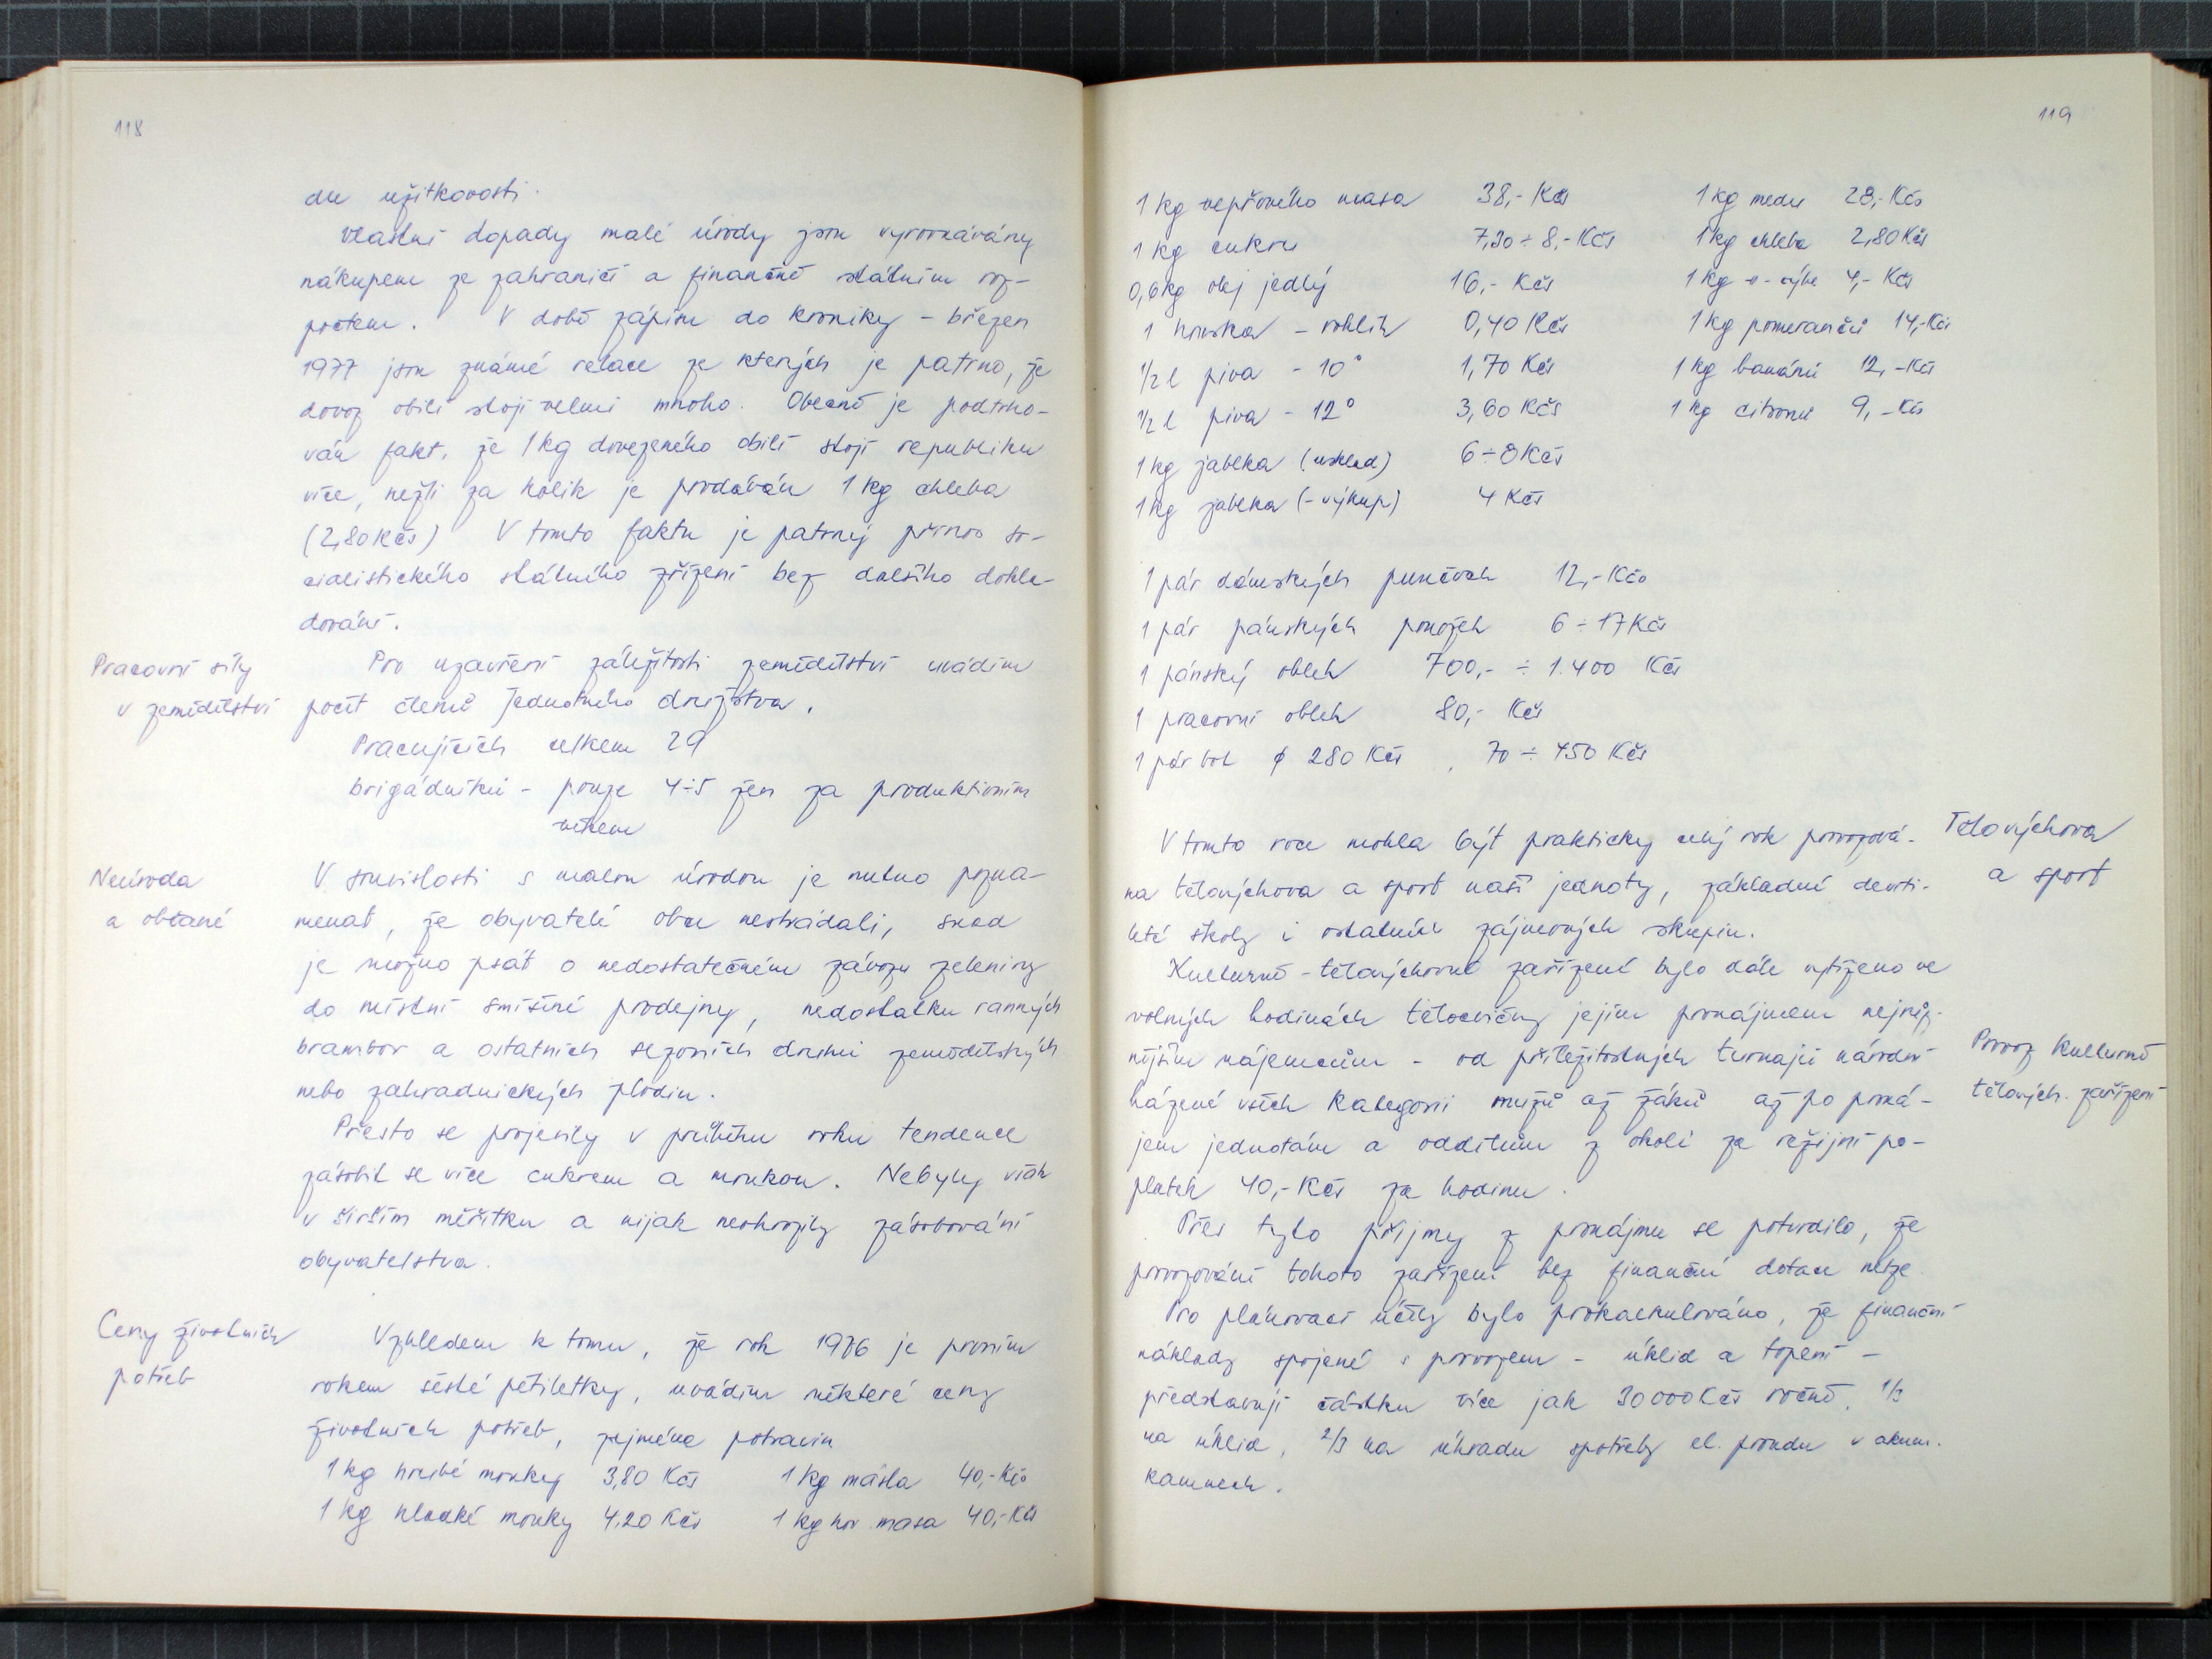 118
du užitkovosti.
Vlastní dopady malé úrody jsou vyrovnávány
nákupem ze zahraničí a finančně státním roz-
počtem. V době zápisu do kroniky – březen
1977 jsou známé relace ze kterých je patrno, že
dovoz obilí stojí velmi mnoho. Obecně je podtrho-
ván fakt, že 1 kg dovezeného obilí stojí republiku
více, nežli za kolik je prodáván 1 kg chleba
(2,80 Kčs) V tomto faktu je patrný přínos so-
cialistického státního zřízení bez dalšího dohla-
dování.
Pracovní síly
v zemědělství
Pro uzavření záležitosti zemědělství uvádím
počet členů Jednotného družstva.
Pracujících celkem 29
brigádníků – pouze 4÷5 žen za produktivním
věkem
Neúroda
a občané
V souvislosti s malou úrodou je nutno pozna-
menat, že obyvatelé obce nestrádali, snad
je možno psát o nedostatečném závozu zeleniny
do místní smíšené prodejny, nedostatku ranných
brambor a ostatních sezoních druhů zemědělských
nebo zahradnických plodin.
Přesto se projevily v průběhu roku tendence
zásobit se více cukrem a moukou. Nebyly však
v širším měřítku a nijak neohrozily zásobování
obyvatelstva.
Ceny životních
potřeb
Vzhledem k tomu, že rok 1976 je prvním
rokem šesté pětiletky, uvádím některé ceny
životních potřeb, zejména potravin
1 kg hrubé mouky 3,80 Kčs 1 kg másla 40,- Kčs
1 kg hladké mouky 4,20 Kčs 1 kg hov. masa 40,- Kčs
119
1 kg vepřového masa 38,- Kčs 1 kg medu 28,- Kčs
1 kg cukru 7,30 ÷ 8,- Kčs 1 kg chleba 2,80 Kčs
0,6 kg olej jedlý 16,- Kčs 1 kg -"- 4,- Kčs
1 houska – rohlík 0,40 Kčs 1 kg pomerančů 14,- Kčs
1/2 l piva – 10° 1,70 Kčs 1 kg banánů 12,- Kčs
1/2 l piva – 12° 3,60 Kčs 1 kg citronů 9,- Kčs
1 kg jablka 6÷8 Kčs
1 kg jablka (-výkup) 4 Kčs
1 pár dámských punčoch 12,- Kčs
1 pár pánských ponožek 6 ÷ 17 Kčs
1 pánský oblek 700,- ÷ 1.400 Kčs
1 pracovní oblek 80,- Kčs
1 pár bot ϕ 280 Kčs, 70 ÷ 450 Kčs
Tělovýchova
a sport
V tomto roce mohla být prakticky celý rok provozová-
na tělovýchova a sport naší jednoty, základní devíti-
leté školy i ostatních zájmových skupin.
Kulturně-tělovýchovné zařízení bylo dále vytíženo ve
volných hodinách tělocvičny jejím pronájmem nejrůz-
nějším nájemcům – od příležitostných turnajů národní
házené všech kategorií mužů až žáků až po proná-
jem jednotám a oddílům z okolí za režijní po-
platek 40,- Kčs za hodinu.
Provoz kulturně
tělových. zařízení
Přes tyto příjmy z pronájmu se potvrdilo, že
provozování tohoto zařízení bez finanční dotace nelze.
Pro plánovací účely bylo prokalkulováno, že finanční
náklady spojené s provozem – úklid a topení –
představují částku více jak 30 000 Kčs ročně, 1/3
na úklid, 2/3 na úhradu spotřeby el. proudu v akum.
kamnech.